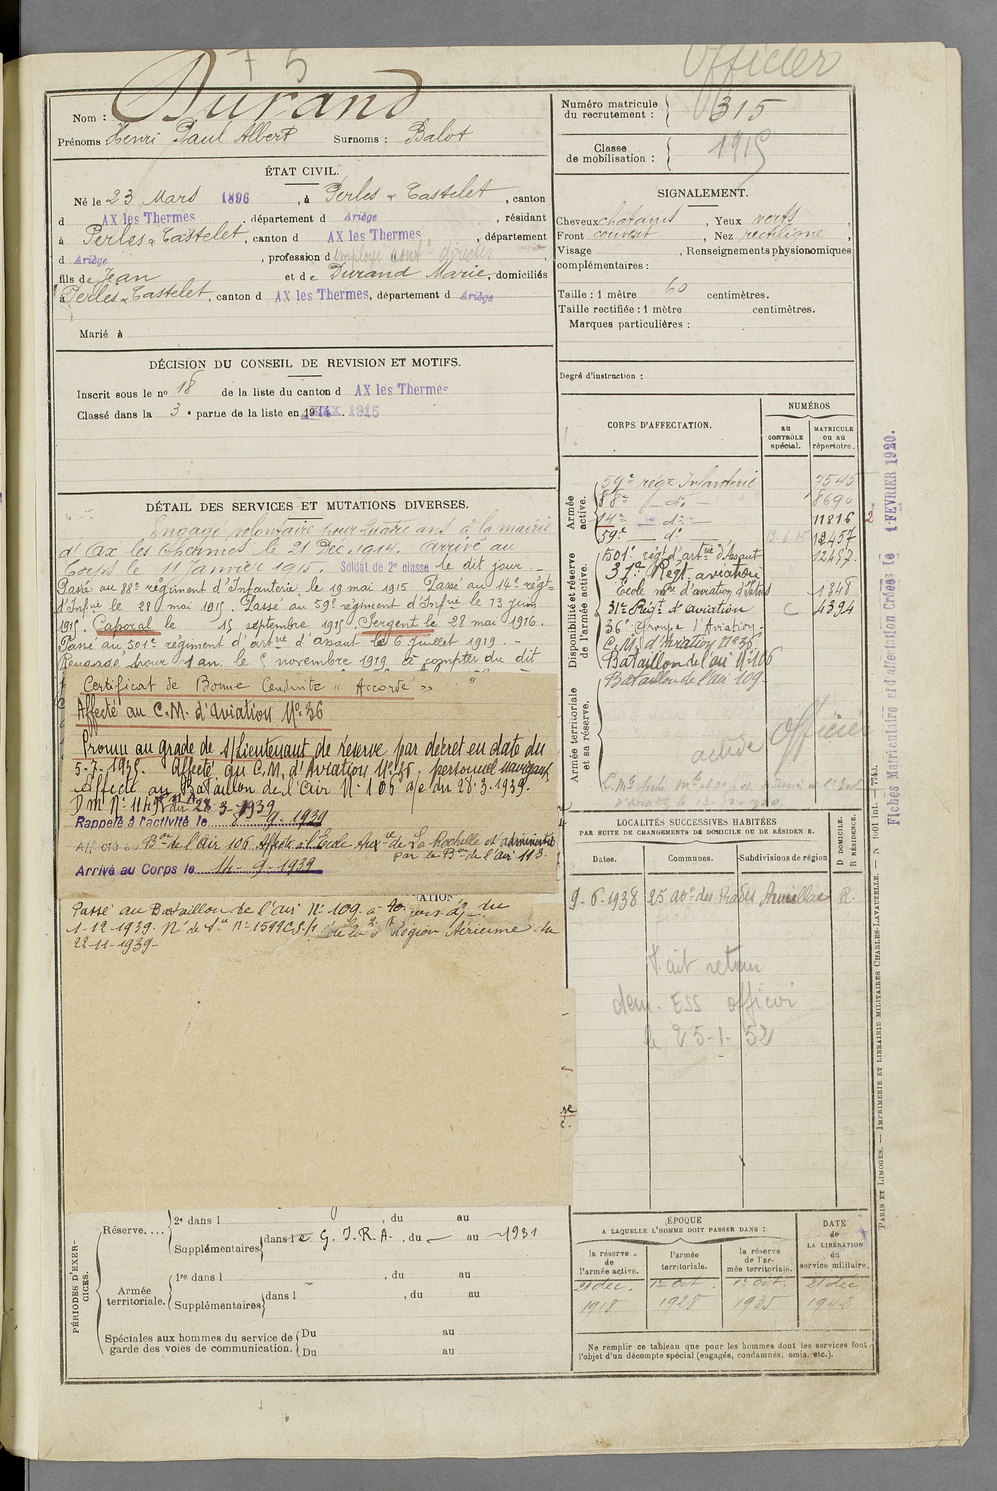 75
Officier
Nom : Durand
Prénoms Henri Paul Albert Surnoms : Balot
Numéro matricule du recrutement : 315
Classe de mobilisation : 1915
ÉTAT CIVIL.
Né le 23 Mars 1896, à Perles & Castelet, canton
d AX les Thermes, département d Ariège, résidant
à Perles & Castelet, canton d AX les Thermes, département
d Ariège, profession d employé
fils de Jean et de Durand Marie, domiciliés
à Perles & Castelet, canton d AX les Thermes, département d Ariège
Marié à
SIGNALEMENT.
Cheveux chatains, Yeux verts,
Front couvert, Nez rectiligne,
Visage , Renseignements physionomiques
complémentaires :
Taille : 1 mètre 60 centimètres.
Taille rectifiée : 1 mètre centimètres.
Marques particulières :
Degré d'instruction :
DÉCISION DU CONSEIL DE REVISION ET MOTIFS.
Inscrit sous le no 18 de la liste du canton d AX les Thermes
Classé dans la 3e partie de la liste en 1915
DÉTAIL DES SERVICES ET MUTATIONS DIVERSES.
Engagé volontaire pour quatre ans à la mairie
d'Ax les Thermes le 21 Déc. 1914. Arrivé au
Corps le 11 Janvier 1915. Soldat de 2e classe le dit jour.
Passé au 88e régiment d'Infanterie le 19 mai 1915 Passé au 14e régt
d'Infrie le 28 mai 1915. Passé au 59e régiment d'Infie le 13 juin
1915. Caporal le 15 septembre 1915. Sergent le 28 mai 1916.
Passé au 501e régiment d'artie d'assaut le 6 Juillet 1919. -
Rengagé pour 1 an, le 5 novembre 1919 à compter du dit
Certificat de Bonne Conduite "Accordé"
Affecté au C.M. d'Aviation No 36
Promu au grade de s/Lieutenant de réserve par décret en date du
5-7-1935. Affecté au C.M. d'Aviation No 36, personnel navigant
Affecté au Bataillon de l'Air No 106 a/c du 28.3.1939.
Dm No 1149 du 28-3-1939
Rappelé à l'activité le 8-9-1939
Affecté au Bon de l'Air 106. Affecté à l'Ecole Auxre de La Rochelle et administré
par le Bon de l'air 113.
Arrivé au Corps le 14-9-1939
Passé au Bataillon de l'air No 109 à du
1-12-1939. No 1599 C.S./1 de la 3e Région Aérienne du
22-11-1939-
CORPS D'AFFECTATION.
NUMÉROS
AU CONTRÔLE spécial.
MATRICULE ou au répertoire.
Armée active.
59e régt Infanterie 7545
88e do 8690
14e do 11816
59e do 12457
Disponibilité et réserve de l'armée active.
501e régt d'artie d'Assaut 12457
37e Régt aviation
Ecole mre d'aviation d'Istres 1348
31e Régt d'aviation C 4394
36e Groupe d'Aviation
C.M. d'Aviation No 36
Bataillon de l'air No 106
Armée territoriale et sa réserve.
Bataillon de l'air 109
Officier
Fiches Matriculaire et d'affectation Créées le 1 FEVRIER 1920.
LOCALITÉS SUCCESSIVES HABITÉES
PAR SUITE DE CHANGEMENTS DE DOMICILE OU DE RÉSIDENCE.
Dates. Communes. Subdivisions de région. D DOMICILE. R RÉSIDENCE.
9-6-1938 25 ave des Prades Aurillac R.
Fait retour
dem. ESS officier
le 25-1-52
PÉRIODES D'EXERCICES.
Réserve.... 2e dans l , du au
Supplémentaires dans le G.I.R.A., du au 1931
Armée territoriale. 1re dans l , du au
Supplémentaires dans l , du au
Spéciales aux hommes du service de garde des voies de communication. Du au
Du au
ÉPOQUE
A LAQUELLE L'HOMME DOIT PASSER DANS :
la réserve de l'armée active. l'armée territoriale. la réserve de l'armée territoriale.
DATE de LA LIBÉRATION du service militaire.
21 déc. 1er oct. 1er oct. 21 déc
1918 1928 1935 1942
Ne remplir ce tableau que pour les hommes dont les services font
l'objet d'un décompte spécial (engagés, condamnés, omis, etc.).
PARIS ET LIMOGES. — IMPRIMERIE ET LIBRAIRIE MILITAIRES CHARLES-LAVAUZELLE. — N 1001 int. — 7743.